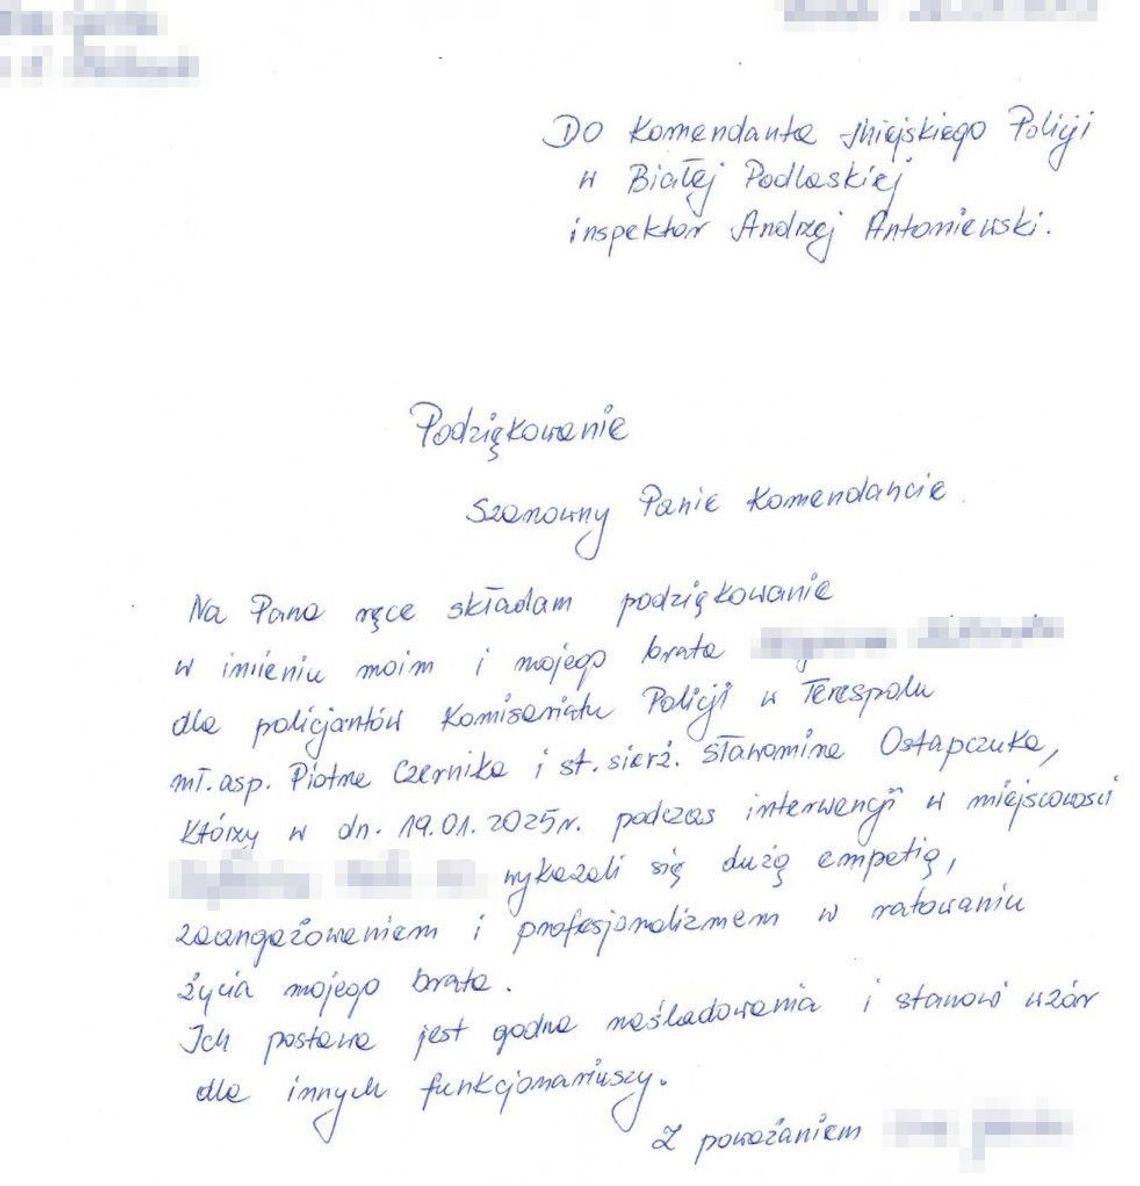 Do Komendanta Miejskiego Policji
w Białej Podlaskiej
inspektor Andrzej Antoniewski.
Podziękowanie
Szanowny Panie Komendancie
Na Pana ręce składam podziękowanie
w imieniu moim i mojego brata
dla policjantów Komisariatu Policji w Terespolu
mł. asp. Piotra Czernika i st. sierż. Sławomira Ostapczuka,
którzy w dn. 19.01.2025r. podczas interwencji w miejscowości
wykazali się dużą empatią,
zaangażowaniem i profesjonalizmem w ratowaniu
życia mojego brata.
Ich postawa jest godna naśladowania i stanowi wzór
dla innych funkcjonariuszy.
Z poważaniem